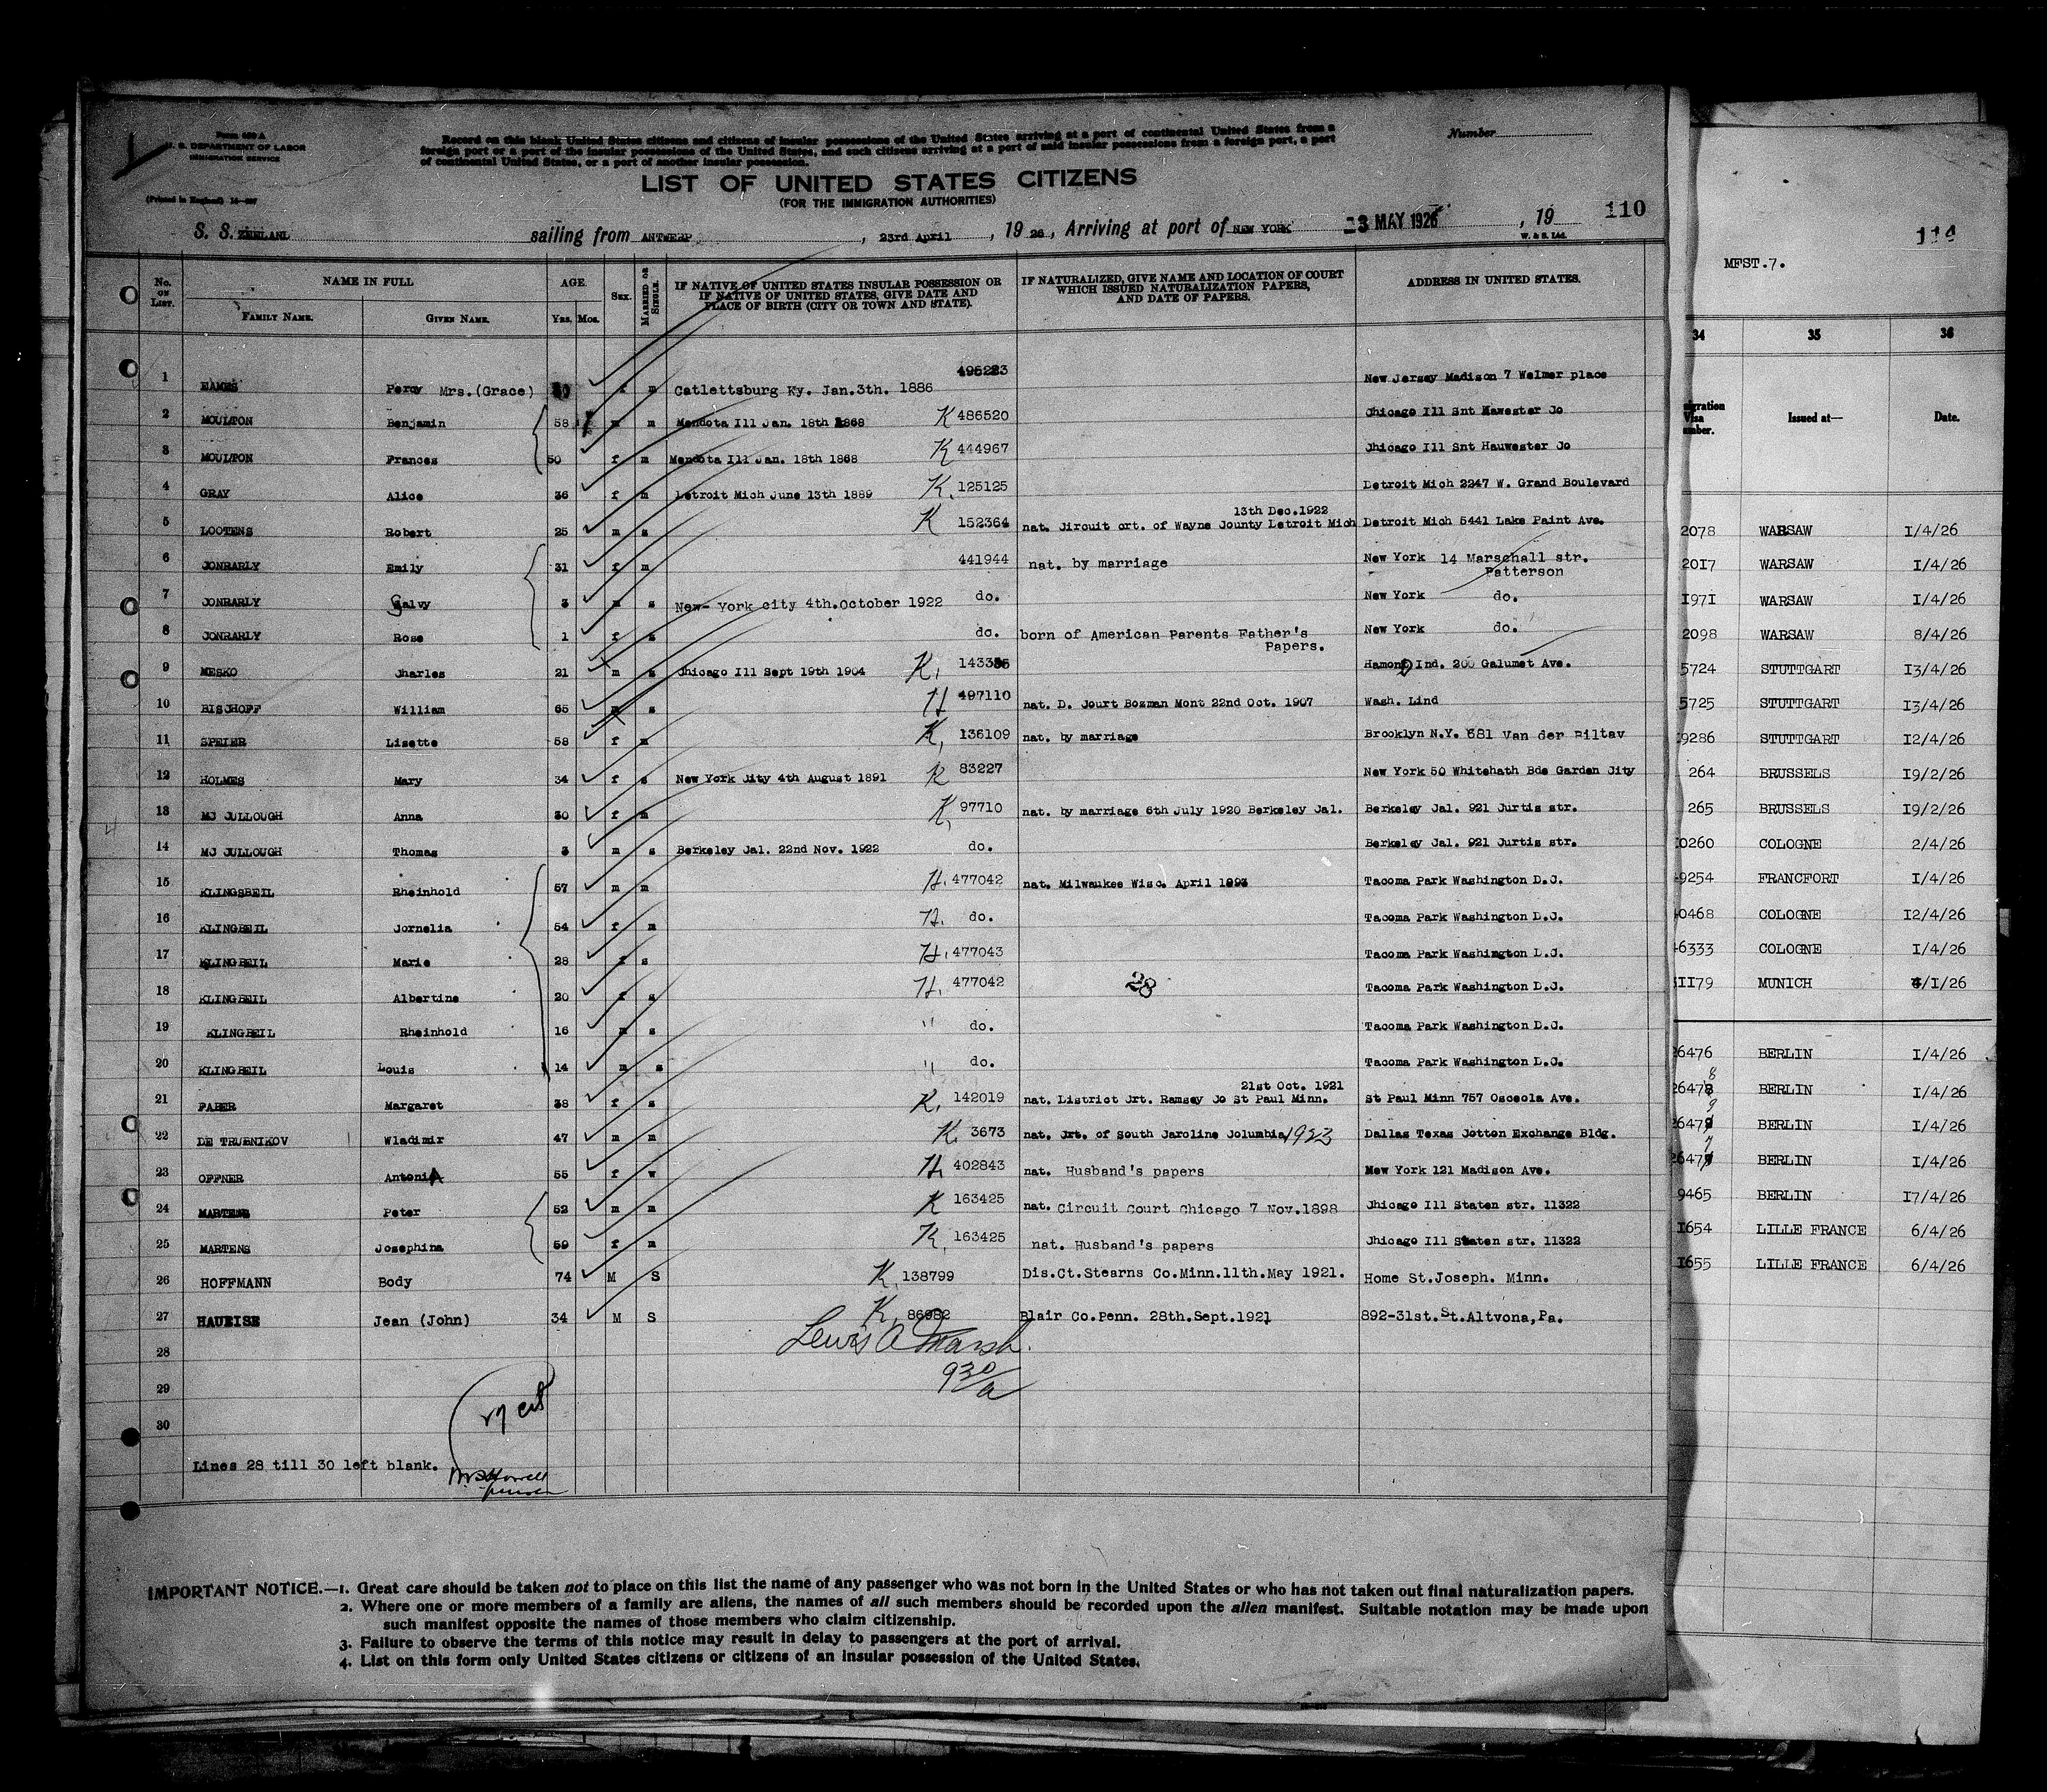 Form 630 A
U. S. DEPARTMENT OF LABOR
IMMIGRATION SERVICE
(Printed in England) 14—
Record on this blank United States citizens and citizens of insular possessions of the United States arriving at a port of continental United States from a
foreign port or a port of the insular possessions of the United States, and such citizens arriving at a port of said insular possessions from a foreign port, a port
of continental United States, or a port of another insular possession.
Number
LIST OF UNITED STATES CITIZENS
(FOR THE IMMIGRATION AUTHORITIES)
S. S. ZEELAND sailing from ANTWERP, 23rd April, 19 26, Arriving at port of NEW YORK 3 MAY 1926, 19 110
W. & S. Ltd.
No. ON LIST. NAME IN FULL AGE. SEX. MARRIED OR SINGLE. IF NATIVE OF UNITED STATES INSULAR POSSESSION OR IF NATIVE OF UNITED STATES, GIVE DATE AND PLACE OF BIRTH (CITY OR TOWN AND STATE). IF NATURALIZED, GIVE NAME AND LOCATION OF COURT WHICH ISSUED NATURALIZATION PAPERS, AND DATE OF PAPERS. ADDRESS IN UNITED STATES.
FAMILY NAME. GIVEN NAME. Yrs. Mos.
1 EAMES Percy Mrs.(Grace) f m Catlettsburg Ky. Jan.3th. 1886 New Jersey Madison 7 Welmer place
2 MOULTON Benjamin 58 m m Mendota Ill Jan. 18th 1868 K 486520 Chicago Ill Snt Jo
3 MOULTON Frances 50 f m Mendota Ill Jan. 18th 1868 K 444967 Jhicago Ill Snt Hauwester Jo
4 GRAY Alice 36 f m Detroit Mich June 13th 1889 K. 125125 Detroit Mich 2247 W. Grand Boulevard
13th Dec.1922
5 LOOTENS Robert 25 m s K 152364 nat. Jircuit crt. of Wayne Jounty Letroit Mich Detroit Mich 5441 Lake Paint Ave.
6 JONRARLY Emily 31 f m 441944 nat. by marriage New York 14 Marschall str.
Patterson
7 JONRARLY Galvy 3 m s New- York city 4th.October 1922 do. New York do.
8 JONRARLY Rose 1 f s do. born of American Parents Father's
Papers. New York do.
9 MESKO Jharles 21 m s Jhicago Ill Sept 19th 1904 K. 143335 Hamond Ind. 200 Galumet Ave.
10 BISJHOFF William 65 m s H 497110 nat. D. Jourt Bozman Mont 22nd Oct. 1907 Wash. Lind
11 SPEIER Lisette 58 f m K. 136109 nat. by marriage Brooklyn N.Y. 681 Van der Biltav
12 HOLMES Mary 34 f s New York Jity 4th August 1891 K 83227 New York 50 Whitehath Bde Garden Jity
13 MJ JULLOUGH Anna 30 f m K, 97710 nat. by marriage 6th July 1920 Berkeley Jal. Berkeley Jal. 921 Jurtis str.
14 MJ JULLOUGH Thomas 3 m s Berkeley Jal. 22nd Nov. 1922 do. Berkeley Jal. 921 Jurtis str.
15 KLINGSBEIL Rheinhold 57 m m H. 477042 nat. Milwaukee Wisc. April 1893 Tacoma Park Washington D.J.
16 KLINGBEIL Jornelia 54 f m H. do. Tacoma Park Washington D.J.
17 KLINGBEIL Marie 28 f s H. 477043 Tacoma Park Washington D.J.
18 KLINGBEIL Albertine 20 f s H. 477042 28 Tacoma Park Washington D.J.
19 KLINGBEIL Rheinhold 16 m s " do. Tacoma Park Washington D.J.
20 KLINGBEIL Louis 14 m s " do. Tacoma Park Washington D.J.
21st Oct. 1921
21 FABER Margaret 38 f s K. 142019 nat. District Jrt. Ramsey Jo St Paul Minn. St Paul Minn 757 Osceola Ave.
22 DE TRUBNIKOV Wladimir 47 m m K. 3673 nat. Jrt. of South Jaroline Jolumbia 1923 Dallas Texas Jotton Exchange Bldg.
23 OFFNER AntoniA 55 f w H. 402843 nat. Husband's papers New York 121 Madison Ave.
24 MARTENS Peter 52 m m K 163425 nat. Circuit Court Chicago 7 Nov.1898 Jhicago Ill Staten str. 11322
25 MARTENS Josephina 59 f m K. 163425 nat. Husband's papers Jhicago Ill Staten str. 11322
26 HOFFMANN Body 74 M S K. 138799 Dis.Ct.Stearns Co.Minn.11th.May 1921. Home St.Joseph. Minn.
27 HAUEISE Jean (John) 34 M S K. 86982 Blair Co.Penn. 28th.Sept.1921 892-31st.St.Altvona,Pa.
28 Lewis A Marsh.
29 930/a
30
Lines 28 till 30 left blank.
IMPORTANT NOTICE.—1. Great care should be taken not to place on this list the name of any passenger who was not born in the United States or who has not taken out final naturalization papers.
2. Where one or more members of a family are aliens, the names of all such members should be recorded upon the alien manifest. Suitable notation may be made upon
such manifest opposite the names of those members who claim citizenship.
3. Failure to observe the terms of this notice may result in delay to passengers at the port of arrival.
4. List on this form only United States citizens or citizens of an insular possession of the United States.
114
MFST.7.
34 35 36
Visa Issued at— Date.
2078 WARSAW I/4/26
20I7 WARSAW I/4/26
I97I WARSAW I/4/26
2098 WARSAW 8/4/26
5724 STUTTGART I3/4/26
5725 STUTTGART I3/4/26
9286 STUTTGART I2/4/26
264 BRUSSELS I9/2/26
265 BRUSSELS I9/2/26
0260 COLOGNE 2/4/26
9254 FRANCFORT I/4/26
0468 COLOGNE I2/4/26
6333 COLOGNE I/4/26
II79 MUNICH /I/26
26476 BERLIN I/4/26
26478 BERLIN I/4/26
26479 BERLIN I/4/26
26477 BERLIN I/4/26
9465 BERLIN I7/4/26
I654 LILLE FRANCE 6/4/26
I655 LILLE FRANCE 6/4/26